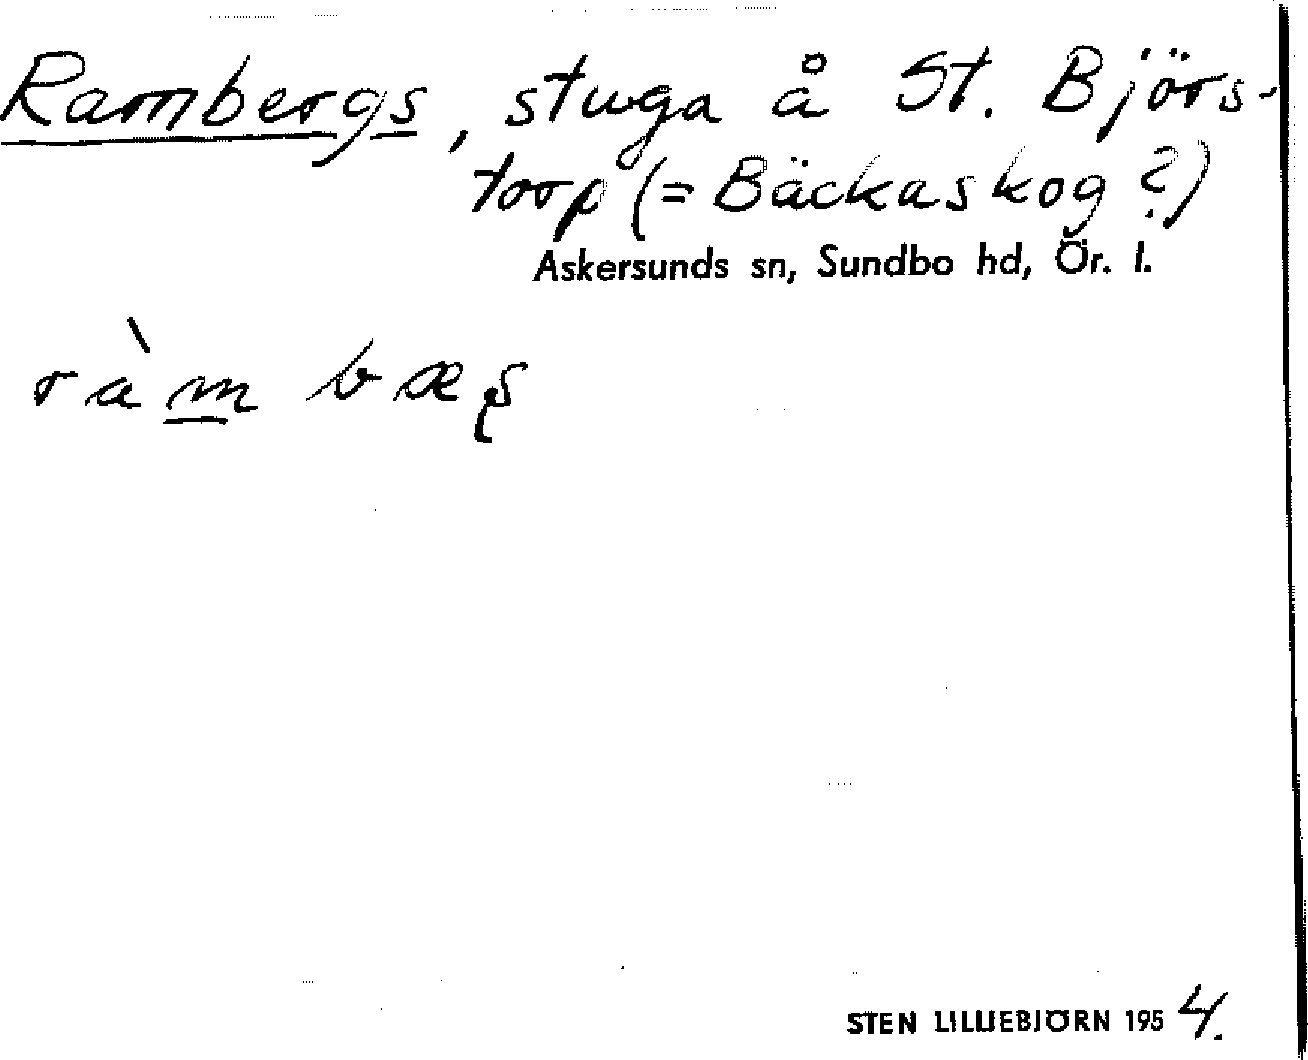 Rambergs, stuga å St. Björs-
torp (= Bäckaskog ?)
Askersunds sn, Sundbo hd, Ör. l.
ràm bæʂ
STEN LILLIEBJÖRN 1954.